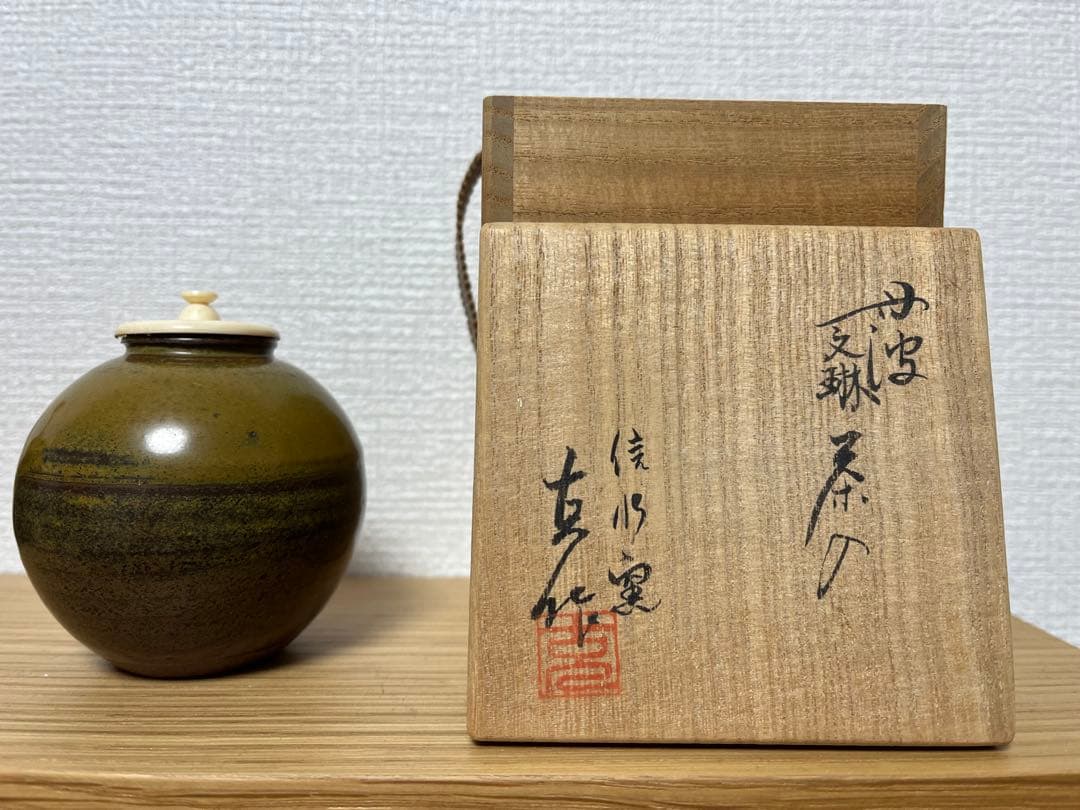 丹波
文琳
茶入
信水窯
直作